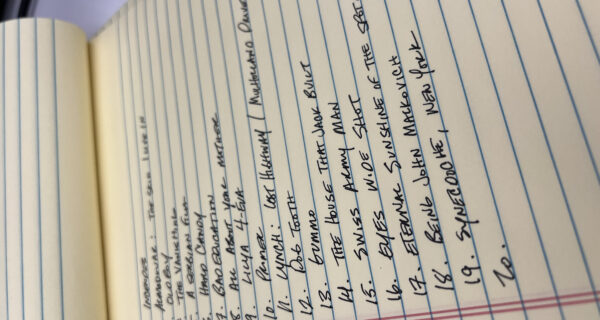 INNOCENCE
ALMODOVAR: THE SKIN I LIVE IN
OLDBOY
THE VANISHING
A SERBIAN FILM
HARD CANDY
7. BAD EDUCATION
8. ALL ABOUT YOUR MOTHER
9. LILYA 4-EVA
10. PRIMER
11. LYNCH: LOST HIGHWAY / MULHOLLAND DRIVE
12. DOG TOOTH
13. GUMMO
14. THE HOUSE THAT JACK BUILT
15. SWISS ARMY MAN
16. EYES WIDE SHUT
17. ETERNAL SUNSHINE OF THE SPOT
18. BEING JOHN MALKOVICH
19. SYNECDOCHE, NEW YORK
20.